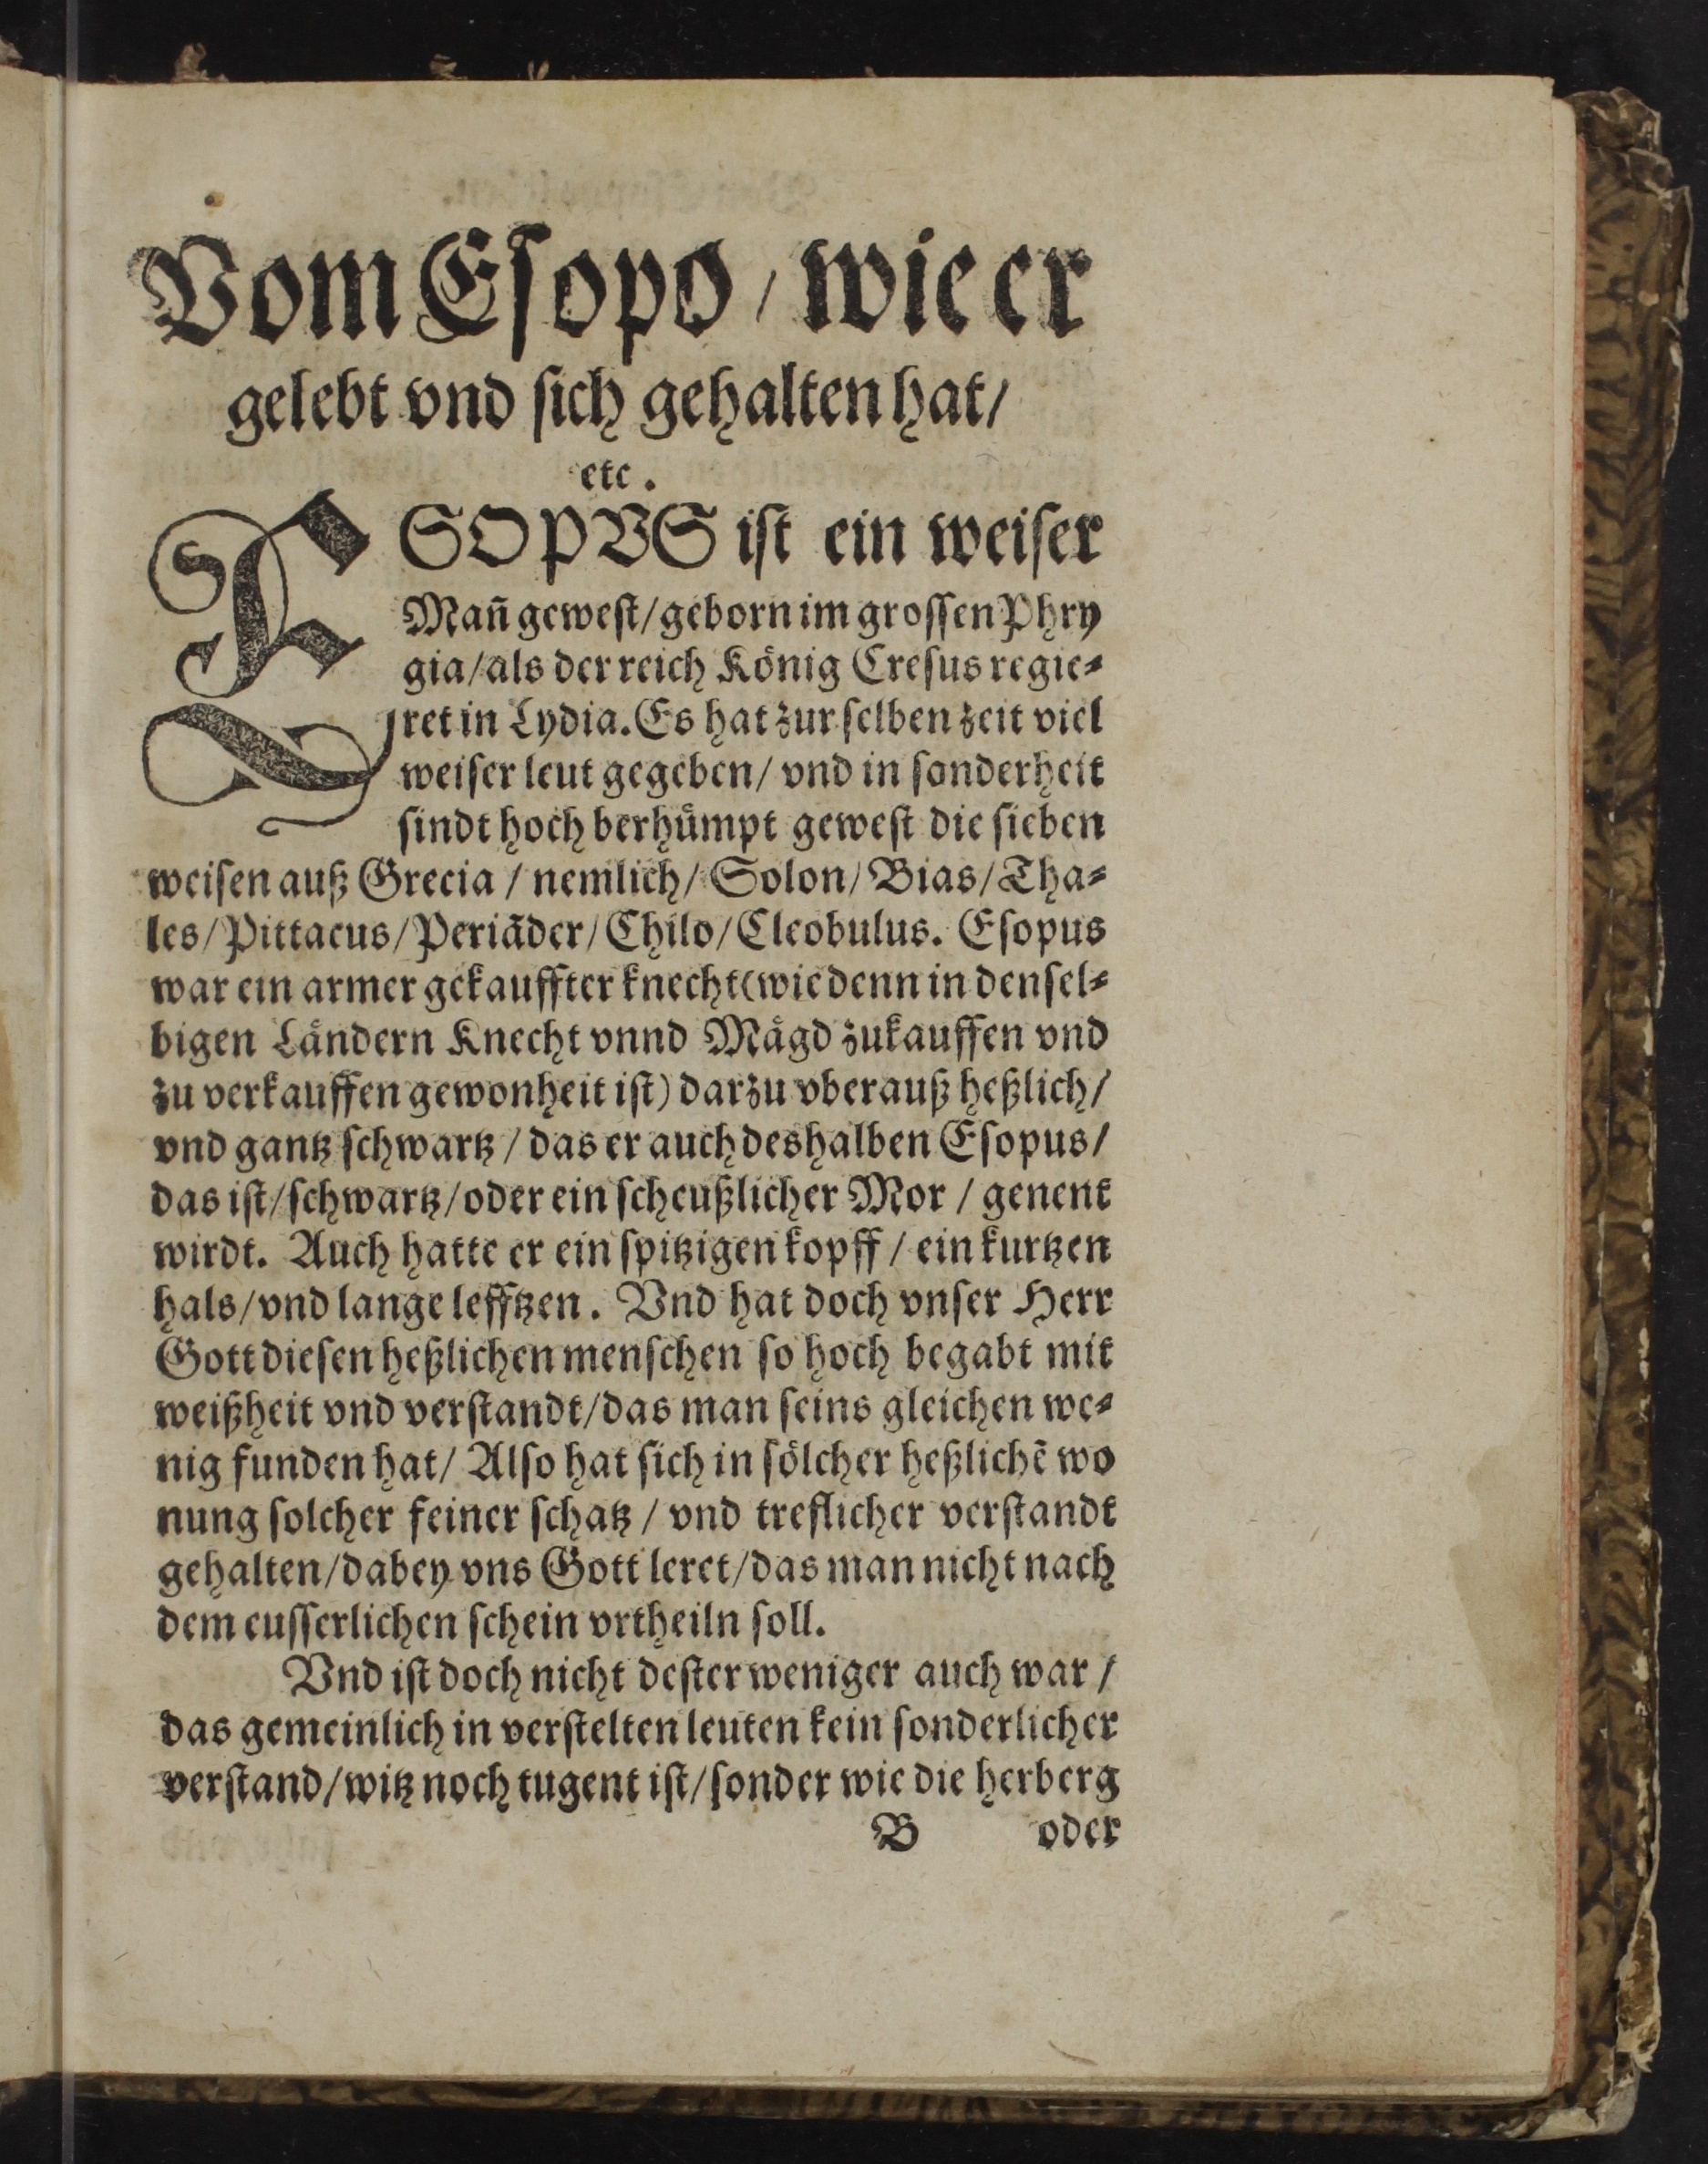 Vom Eſopo / wie er
gelebt vnd ſich gehalten hat/
etc.
ESOPVS iſt ein weiſer
Mañ geweſt/geborn im groſſen Phry
gia/als der reich König Creſus regie⸗
ret in Lydia. Es hat zur ſelben zeit viel
weiſer leut gegeben/ vnd in ſonderheit
ſindt hoch berhümpt geweſt die ſieben
weiſen auß Grecia / nemlich/ Solon/ Bias/ Tha⸗
les/ Pittacus/ Periãder/ Chilo/ Cleobulus. Eſopus
war ein armer gekauffter knecht(wie denn in denſel⸗
bigen Ländern Knecht vnnd Mägd zukauffen vnd
zu verkauffen gewonheit iſt) darzu vberauß heßlich/
vnd gantz ſchwartz / das er auch deshalben Eſopus/
das iſt/ſchwartz/oder ein ſcheußlicher Mor / genent
wirdt. Auch hatte er ein ſpitzigen kopff / ein kurtzen
hals/vnd lange lefftzen. Vnd hat doch vnſer Herr
Gott dieſen heßlichen menſchen ſo hoch begabt mit
weißheit vnd verſtandt/das man ſeins gleichen we⸗
nig funden hat/ Alſo hat ſich in ſölcher heßlichẽ wo
nung ſolcher feiner ſchatz / vnd treflicher verſtandt
gehalten/dabey vns Gott leret/das man nicht nach
dem euſſerlichen ſchein vrtheiln ſoll.
Vnd iſt doch nicht deſter weniger auch war /
das gemeinlich in verſtelten leuten kein ſonderlicher
verſtand/witz noch tugent iſt/ſonder wie die herberg
B oder